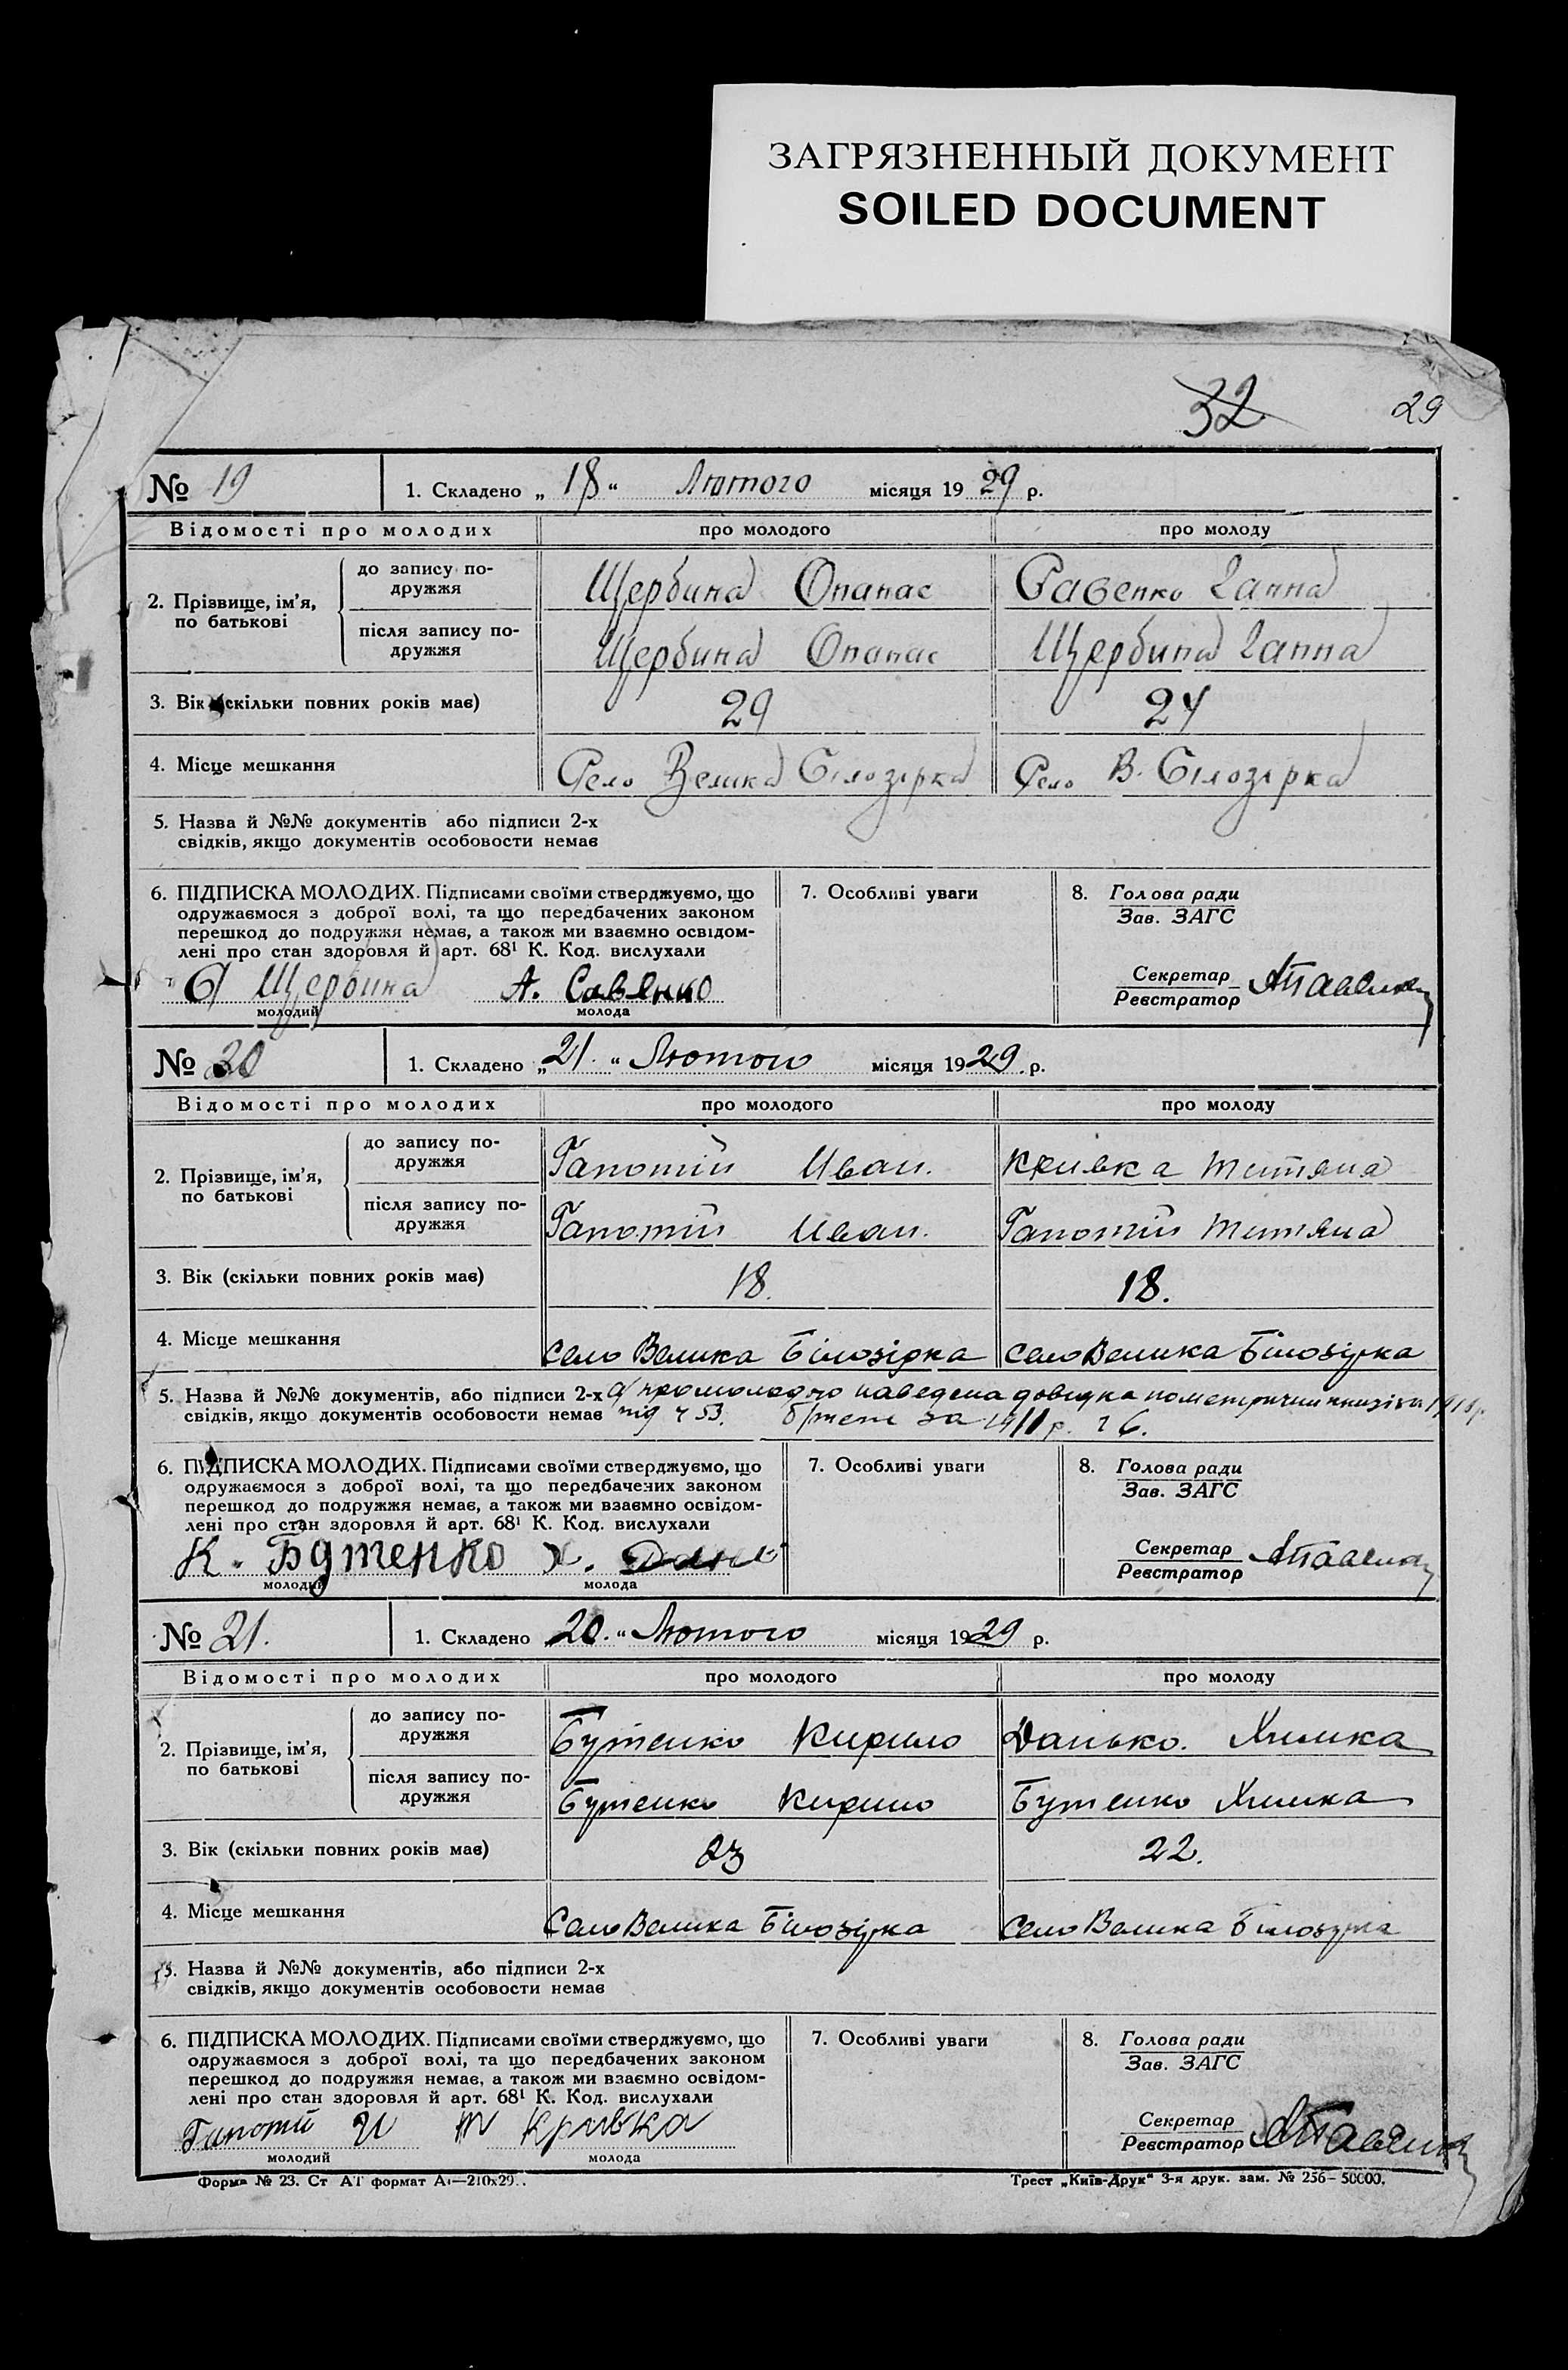 ЗАГРЯЗНЕННЫЙ ДОКУМЕНТ
SOILED DOCUMENT
32 29
№ 19 1. Складено „ 18 “ Лютого місяця 19 29 р.
Відомості про молодих про молодого про молоду
2. Прізвище, ім'я, по батькові
до запису подружжя Щербина Опанас Савенко Ганна
після запису подружжя Щербина Опанас Щербина Ганна
3. Вік (скільки повних років має) 29 24
4. Місце мешкання Село Велика Білозірка Село В. Білозірка
5. Назва й №№ документів або підписи 2-х
свідків, якщо документів особовости немає
6. ПІДПИСКА МОЛОДИХ. Підписами своїми стверджуємо, що
одружаємося з доброї волі, та що передбачених законом
перешкод до подружжя немає, а також ми взаємно освідом-
лені про стан здоровля й арт. 68¹ К. Код. вислухали
Щербина А. Савенко
молодий молода
7. Особливі уваги
8. Голова ради
Зав. ЗАГС
Секретар
Реєстратор
№ 20 1. Складено „ 21. “ Лютого місяця 19 29 р.
Відомості про молодих про молодого про молоду
2. Прізвище, ім'я, по батькові
до запису подружжя Гапотій Иван. Кривка Титяна
після запису подружжя Гапотій Иван. Гапотій Титяна
3. Вік (скільки повних років має) 18. 18.
4. Місце мешкання село Велика Білозірка село Велика Білозірка
5. Назва й №№ документів, або підписи 2-х
свідків, якщо документів особовости немає під ч 53. за 1911 р. ч 6.
6. ПІДПИСКА МОЛОДИХ. Підписами своїми стверджуємо, що
одружаємося з доброї волі, та що передбачених законом
перешкод до подружжя немає, а також ми взаємно освідом-
лені про стан здоровля й арт. 68¹ К. Код. вислухали
К. Бутенко Х.
молодий молода
7. Особливі уваги
8. Голова ради
Зав. ЗАГС
Секретар
Реєстратор
№ 21. 1. Складено 20. “ Лютого місяця 19 29 р.
Відомості про молодих про молодого про молоду
2. Прізвище, ім'я, по батькові
до запису подружжя Бутенко Кирило Данько. Химка
після запису подружжя Бутенко Кирило Бутенко Химка
3. Вік (скільки повних років має) 23 22.
4. Місце мешкання Село Велика Білозірка Село Велика Білозірка
5. Назва й №№ документів, або підписи 2-х
свідків, якщо документів особовости немає
6. ПІДПИСКА МОЛОДИХ. Підписами своїми стверджуємо, що
одружаємося з доброї волі, та що передбачених законом
перешкод до подружжя немає, а також ми взаємно освідом-
лені про стан здоровля й арт. 68¹ К. Код. вислухали
Гапотій И Т Кривка
молодий молода
7. Особливі уваги
8. Голова ради
Зав. ЗАГС
Секретар
Реєстратор
Форма № 23. Ст АТ формат А₄—210х29. Трест „Київ-Друк“ 3-я друк. зам. № 256–50000.